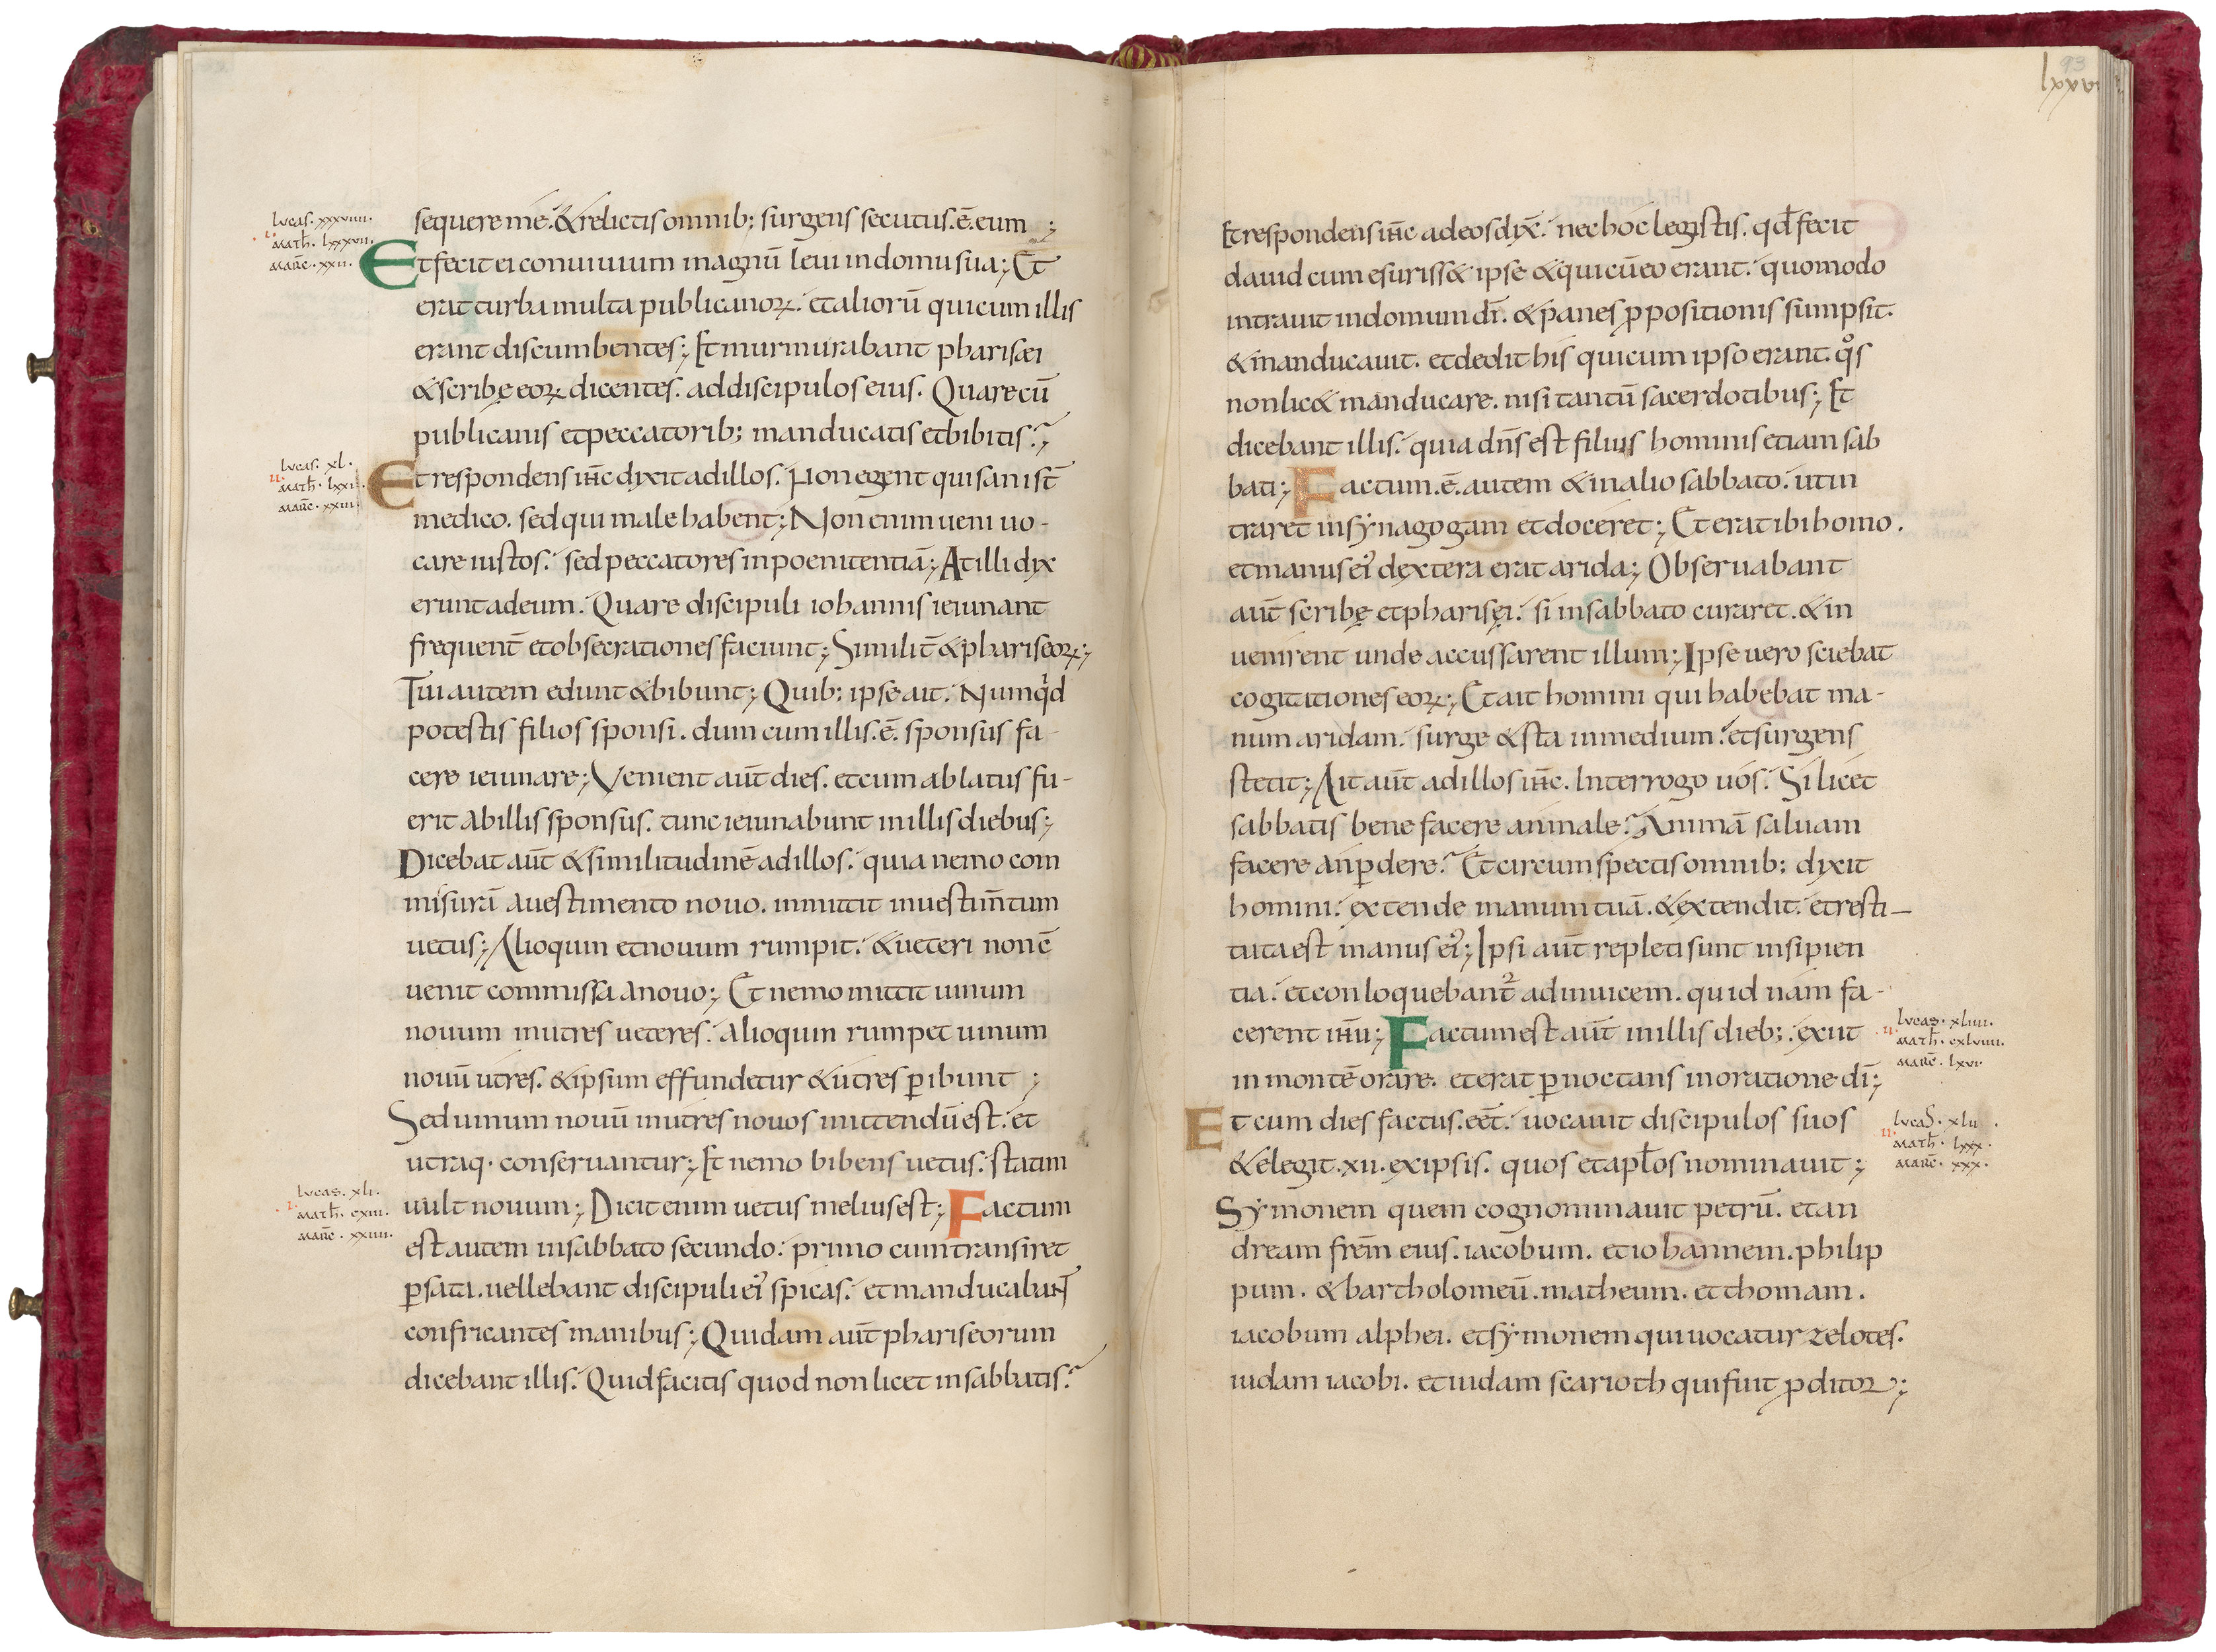 lucas. xxxviiii.
i. math̄. lxxxvii.
mar̄c. xxii.
sequere me. & relictis omnib; surgens secutus. ē. eum ;
Et fecit ei conuiuium magnū leui in domu sua; Et
erat turba multa publicanoꝝ. et aliorū qui cum illis
erant discumbentes; Et murmurabant pharisæi
& scribę eoꝝ dicentes. ad discipulos eius. Quare cū
publicanis et peccatorib; manducatis et bibitis?
lucas. xl.
ii. math̄. lxxi.
mar̄c. xxiii.
Et respondens ih̄c dixit ad illos. Non egent qui sani st̄
medico. sed qui male habent; Non enim ueni uo-
care iustos. sed peccatores in poenitentiā; At illi dix
erunt ad eum. Quare discipuli iohannis ieiunant
frequent̄ et obsecrationes faciunt; Similit̄ & phariseoꝝ;
Tui autem edunt & bibunt; Quib; ipse ait. Numqd
potestis filios sponsi. dum cum illis. ē. sponsus fa-
cere ieiunare; Venient aut̄ dies. et cum ablatus fu-
erit ab illis sponsus. tunc ieiunabunt in illis diebus;
Dicebat aut̄ & similitudinē ad illos. quia nemo com
misurā a uestimento nouo. inmittit in uestim̄tum
uetus; Alioquin et nouum rumpit. & ueteri non cō
uenit commissa a nouo; Et nemo mittit uinum
nouum in utres ueteres. alioquin rumpet uinum
nouū utres. & ipsum effundetur & utres ꝑibunt ;
Sed uinum nouū in utres nouos mittendū est. et
utraq. conseruantur; Et nemo bibens uetus. statim
lucas. xli.
ii. math̄. cxiii.
mar̄c. xxiiii.
uult nouum; Dicit enim uetus melius est; Factum
est autem in sabbato secundo. primo cum transiret
ꝑ sata. uellebant discipuli ei' spicas. et manducabant
confricantes manibus; Quidam aut̄ phariseorum
dicebant illis. Quid facitis quod non licet in sabbatis?
93
lxxvi
Et respondens ih̄c ad eos dix̄. nec hoc legistis. qd̄ fecit
dauid cum esuriss& ipse & qui cū eo erant. quomodo
intrauit in domum dī. & panes ꝓpositionis sumpsit.
& manducauit. et dedit his qui cum ipso erant. qos
non lic& manducare. nisi tantū sacerdotibus; Et
dicebant illis. quia dn̄s est filius hominis etiam sab
bati; Factum. ē. autem & in alio sabbato. ut in
traret in synagogam et doceret; Et erat ibi homo.
et manus ei' dextera erat arida; Obseruabant
aut̄ scribę et pharisęi. si in sabbato curaret. & in
uenirent unde accussarent illum; Ipse uero sciebat
cogitationes eoꝝ; Et ait homini qui habebat ma-
num aridam. surge & sta in medium. et surgens
stetit; Ait aut̄ ad illos ih̄c. Interrogo uos. Si licet
sabbatis bene facere an male? Animā saluam
facere an ꝑdere? Et circumspectis omnib; dixit
homini. extende manum tuā. & extendit. et resti-
tuta est manus ei'; Ipsi aut̄ repleti sunt insipien
tia. et conloquebant² ad inuicem. quid nam fa-
cerent ih̄u; Factum est aut̄ in illis dieb;. exiit
lucas. xliiii.
ii. math̄. cxlviiii.
mar̄c. lxvi.
in montē orare. et erat ꝑnoctans in oratione dī;
Et cum dies factus. eēt. uocauit discipulos suos
lucas. xlii.
ii. math̄. lxxx.
mar̄c. xxx.
& elegit. xii. ex ipsis. quos et apl̄os nominauit ;
Symonem quem cognominauit petrū. et an
dream frēm eius. iacobum. et iohannem. philip
pum. & bartholomeū. matheum. et thomam.
iacobum alphei. et symonem qui uocatur zelotes.
iudam iacobi. et iudam scarioth qui fuit ꝓditor;